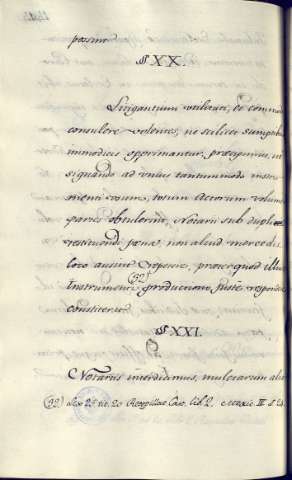 possint
§XX.
Litigantium utilitati, et commodo
consulere volentes, ne scilicet sumptibus
immodicis opprimantur, praecipimus, ut
siquando ad unius tantummodo instru-
menti totum Actorum volumen
partes obtulerint, Notarii sub dupli
restituendi poena, non aliud mercedis
loco audeant repetere, praeterquod illius
Instrumenti productione juste respondere
constiterit (22)
§XXI.
Notariis interdicimus, mulctarum ali
(22) lex 2ª tit. 20 Recopillac. Cast. lib. 2.